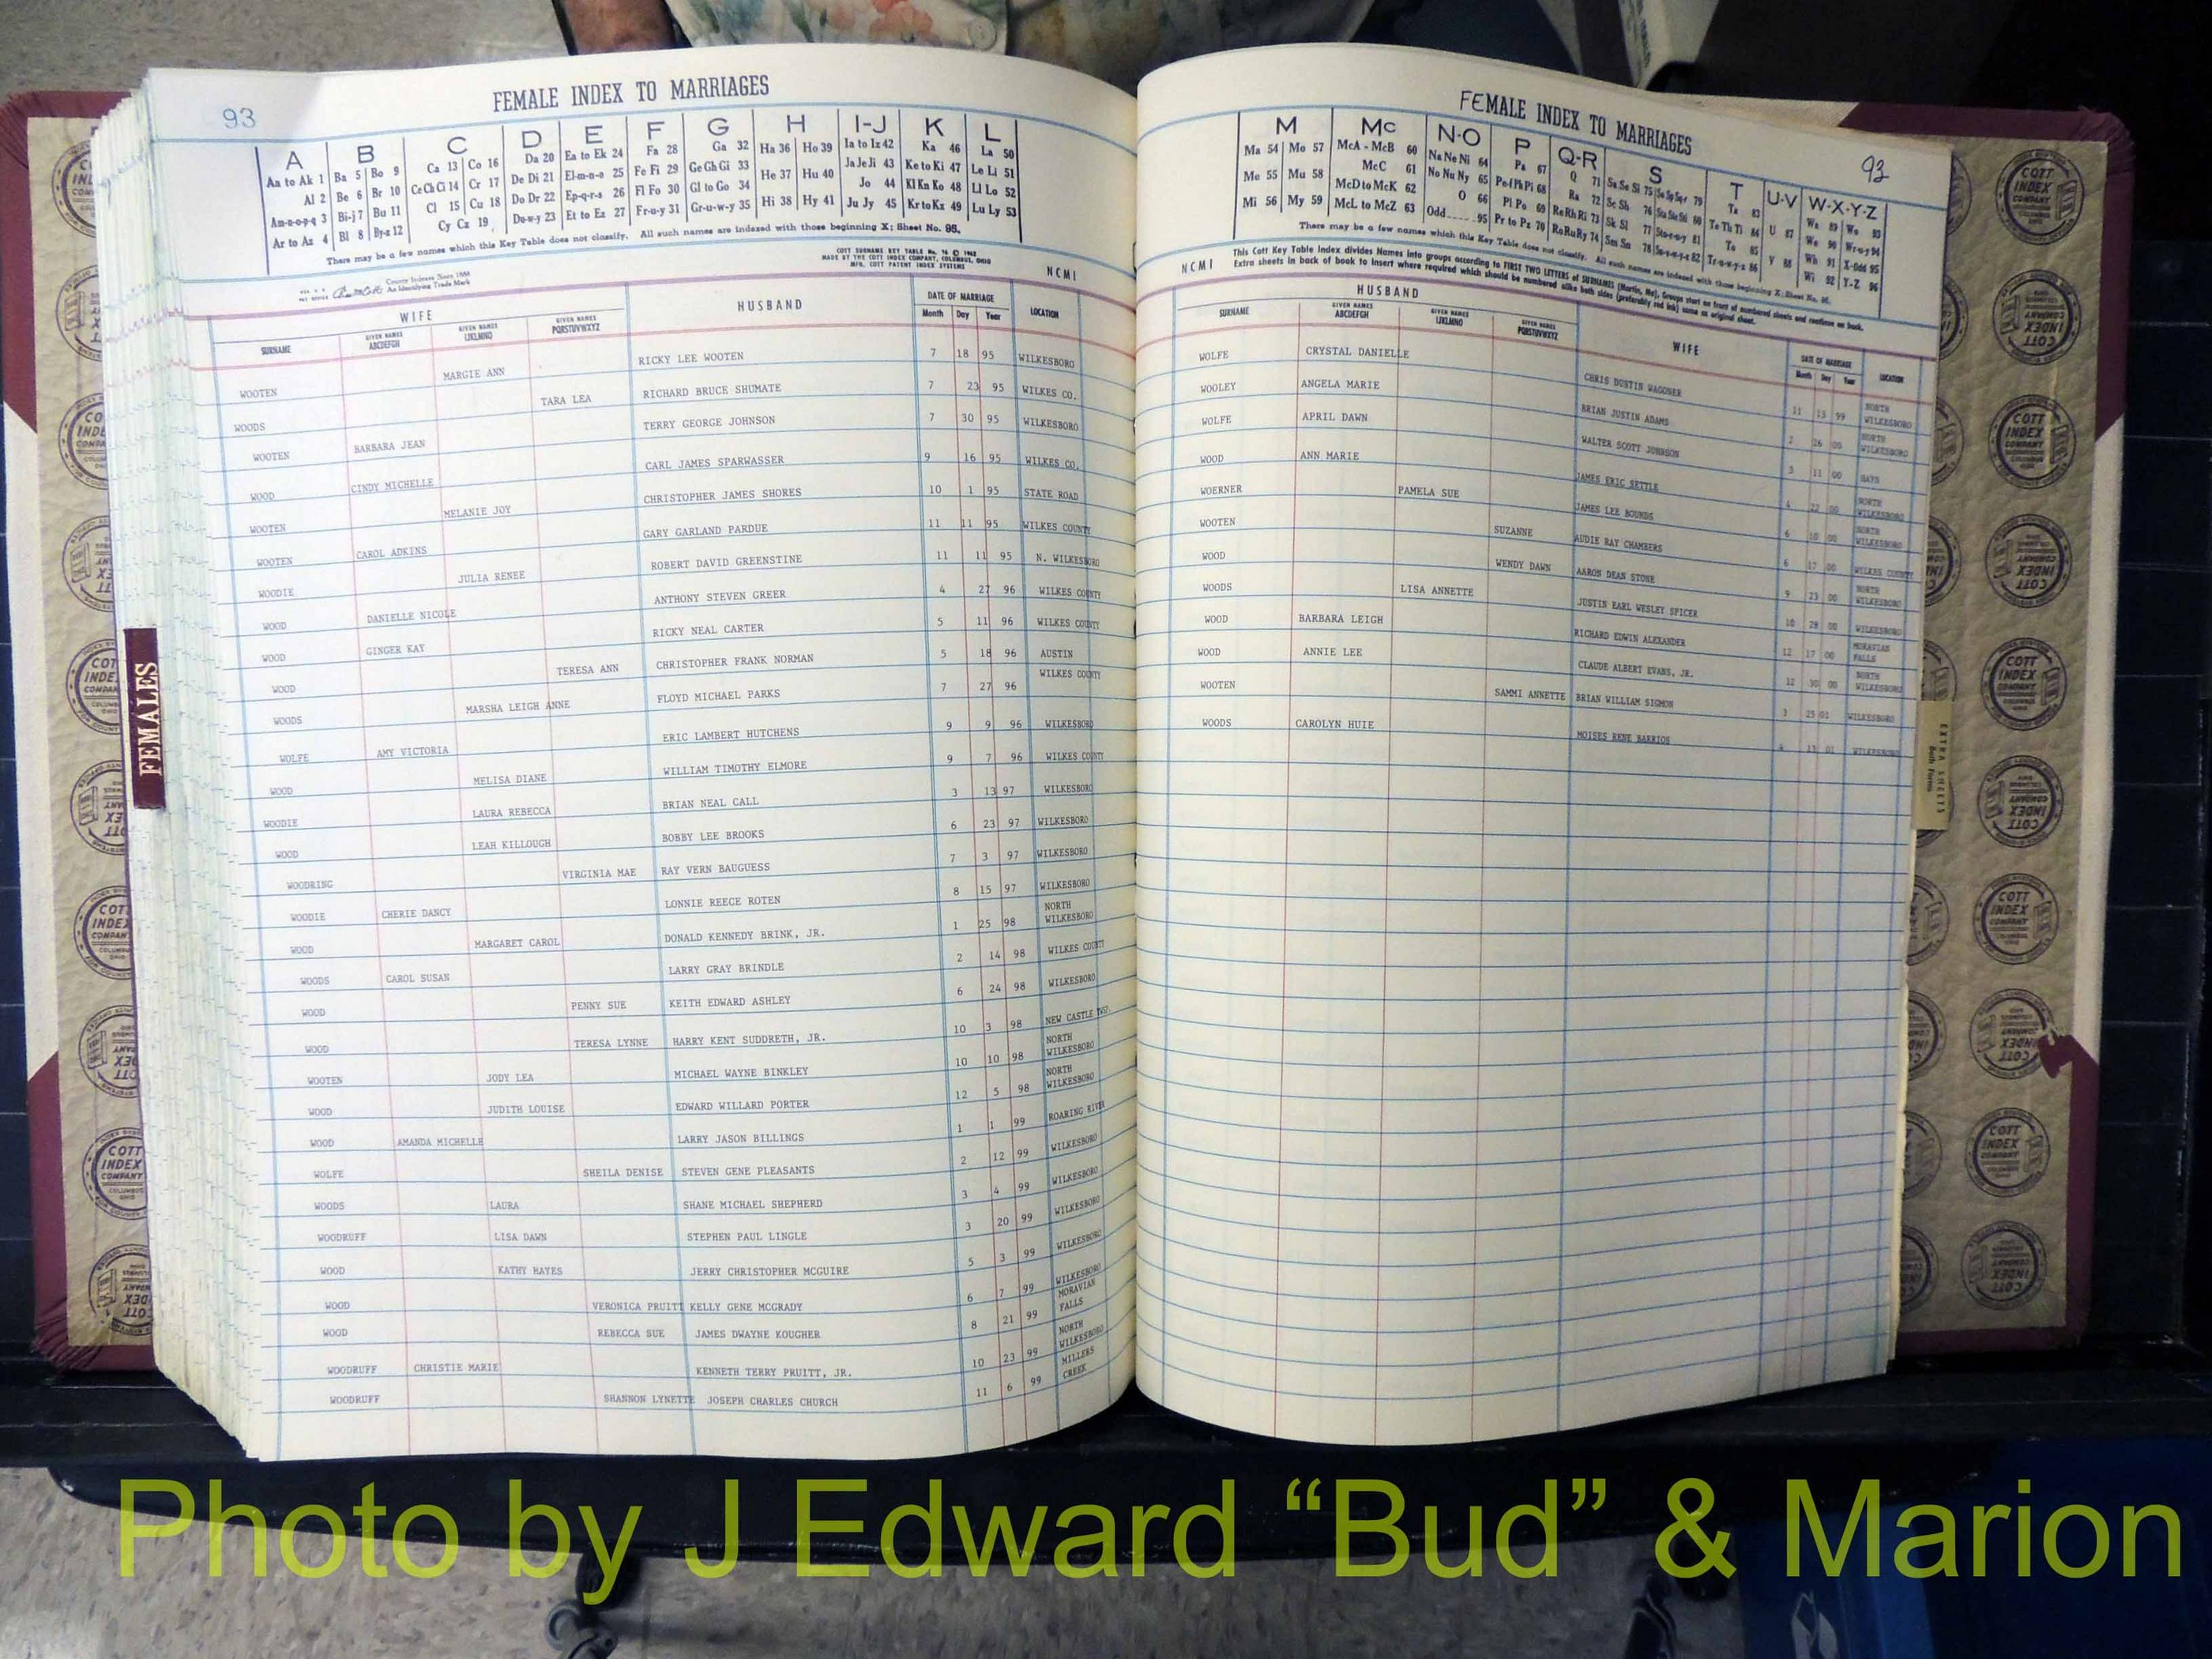 93
FEMALE INDEX TO MARRIAGES
A B C D E F G H I-J K L
Aa to Ak 1 Ba 5 Bo 9 Ca 13 Co 16 Da 20 Ea to Ek 24 Fa 28 Ga 32 Ha 36 Ho 39 Ia to Iz 42 Ka 46 La 50
Al 2 Be 6 Br 10 Ce Ch Ci 14 Cr 17 De Di 21 El-m-n-o 25 Fe Fi 29 Ge Gh Gi 33 He 37 Hu 40 Ja Je Ji 43 Ke to Ki 47 Le Li 51
Am-n-o-p-q 3 Bi-j 7 Bu 11 Cl 15 Cu 18 Do Dr 22 Ep-q-r-s 26 Fl Fo 30 Gl to Go 34 Hi 38 Hy 41 Jo 44 Kl Kn Ko 48 Ll Lo 52
Ar to Az 4 Bl 8 By-z 12 Cy Cz 19 Du-w-y 23 Et to Ez 27 Fr-u-y 31 Gr-u-w-y 35 Ju Jy 45 Kr to Kz 49 Lu Ly 53
There may be a few names which this Key Table does not classify. All such names are indexed with those beginning X; Sheet No. 95.
County Indexes Since 1888
An Identifying Trade Mark
MADE BY THE COTT INDEX COMPANY, COLUMBUS, OHIO
MFG. COTT PATENT INDEX SYSTEMS
NCMI
WIFE HUSBAND DATE OF MARRIAGE LOCATION
SURNAME GIVEN NAMES ABCDEFGH GIVEN NAMES IJKLMNO GIVEN NAMES PQRSTUVWXYZ Month Day Year
WOOTEN MARGIE ANN RICKY LEE WOOTEN 7 18 95 WILKESBORO
WOODS TARA LEA RICHARD BRUCE SHUMATE 7 23 95 WILKES CO.
WOOTEN BARBARA JEAN TERRY GEORGE JOHNSON 7 30 95 WILKESBORO
WOOD CINDY MICHELLE CARL JAMES SPARWASSER 9 16 95 WILKES CO.
WOOTEN MELANIE JOY CHRISTOPHER JAMES SHORES 10 1 95 STATE ROAD
WOOTEN CAROL ADKINS GARY GARLAND PARDUE 11 11 95 WILKES COUNTY
WOODIE JULIA RENEE ROBERT DAVID GREENSTINE 11 11 95 N. WILKESBORO
WOOD DANIELLE NICOLE ANTHONY STEVEN GREER 4 27 96 WILKES COUNTY
WOOD GINGER KAY RICKY NEAL CARTER 5 11 96 WILKES COUNTY
WOOD TERESA ANN CHRISTOPHER FRANK NORMAN 5 18 96 AUSTIN
WOODS MARSHA LEIGH ANNE FLOYD MICHAEL PARKS 7 27 96 WILKES COUNTY
WOLFE AMY VICTORIA ERIC LAMBERT HUTCHENS 9 9 96 WILKESBORO
WOOD MELISA DIANE WILLIAM TIMOTHY ELMORE 9 7 96 WILKES COUNTY
WOODIE LAURA REBECCA BRIAN NEAL CALL 3 13 97 WILKESBORO
WOOD LEAH KILLOUGH BOBBY LEE BROOKS 6 23 97 WILKESBORO
WOODRING VIRGINIA MAE RAY VERN BAUGUESS 7 3 97 WILKESBORO
WOODIE CHERIE DANCY LONNIE REECE ROTEN 8 15 97 WILKESBORO
WOOD MARGARET CAROL DONALD KENNEDY BRINK, JR. 1 25 98 NORTH WILKESBORO
WOODS CAROL SUSAN LARRY GRAY BRINDLE 2 14 98 WILKES COUNTY
WOOD PENNY SUE KEITH EDWARD ASHLEY 6 24 98 WILKESBORO
WOOD TERESA LYNNE HARRY KENT SUDDRETH, JR. 10 3 98 NEW CASTLE TWP.
WOOTEN JODY LEA MICHAEL WAYNE BINKLEY 10 10 98 NORTH WILKESBORO
WOOD JUDITH LOUISE EDWARD WILLARD PORTER 12 5 98 NORTH WILKESBORO
WOOD AMANDA MICHELLE LARRY JASON BILLINGS 1 1 99 ROARING RIVER
WOLFE SHEILA DENISE STEVEN GENE PLEASANTS 2 12 99 WILKESBORO
WOODS LAURA SHANE MICHAEL SHEPHERD 3 4 99 WILKESBORO
WOODRUFF LISA DAWN STEPHEN PAUL LINGLE 3 20 99 WILKESBORO
WOOD KATHY HAYES JERRY CHRISTOPHER MCGUIRE 5 3 99 WILKESBORO
WOOD VERONICA PRUITT KELLY GENE MCGRADY 6 7 99 WILKESBORO
WOOD REBECCA SUE JAMES DWAYNE KOUGHER 8 21 99 MORAVIAN FALLS
WOODRUFF CHRISTIE MARIE KENNETH TERRY PRUITT, JR. 10 23 99 NORTH WILKESBORO
WOODRUFF SHANNON LYNETTE JOSEPH CHARLES CHURCH 11 6 99 MILLERS CREEK
FEMALES
FEMALE INDEX TO MARRIAGES
93
M Mc N-O P Q-R S T U-V W-X-Y-Z
Ma 54 Mo 57 McA - McB 60 Na Ne Ni 64 Pa 67 Q 71 Sa Se Si 75 79 Ta 83 Wa 89 Wo 93
Me 55 Mu 58 McC 61 No Nu Ny 65 Pe-f Ph Pi 68 Ra 72 Sc Sh 76 80 Te Th Ti 84 U 87 We 90 Wr-u-y 94
Mi 56 My 59 McD to McK 62 O 66 Pl Po 69 Re Rh Ri 73 Sk Sl 77 81 To 85 V 88 Wh 91 X-Odd 95
McL to McZ 63 Odd 95 Pr to Pz 70 Ro Ru Ry 74 Sm Sn 78 82 Tr-u-w-y-z 86 Wi 92 Y-Z 96
There may be a few names which this Key Table does not classify. All such names are indexed with those beginning X; Sheet No. 95.
NCMI This Cott Key Table Index divides Names into groups according to FIRST TWO LETTERS of SURNAMES (Martin, Ma). Groups start on front of numbered sheets and continue on back.
Extra sheets in back of book to insert where required which should be numbered alike both sides (preferably red ink) same as original sheet.
HUSBAND WIFE DATE OF MARRIAGE LOCATION
SURNAME GIVEN NAMES ABCDEFGH GIVEN NAMES IJKLMNO GIVEN NAMES PQRSTUVWXYZ Month Day Year
WOLFE CRYSTAL DANIELLE CHRIS DUSTIN WAGONER 11 13 99 NORTH WILKESBORO
WOOLEY ANGELA MARIE BRIAN JUSTIN ADAMS 2 26 00 NORTH WILKESBORO
WOLFE APRIL DAWN WALTER SCOTT JOHNSON 3 11 00 HAYS
WOOD ANN MARIE JAMES ERIC SETTLE 4 22 00 NORTH WILKESBORO
WOERNER PAMELA SUE JAMES LEE BOUNDS 6 10 00 NORTH WILKESBORO
WOOTEN SUZANNE AUDIE RAY CHAMBERS 6 17 00 WILKES COUNTY
WOOD WENDY DAWN AARON DEAN STONE 9 23 00 NORTH WILKESBORO
WOODS LISA ANNETTE JUSTIN EARL WESLEY SPICER 10 28 00 WILKESBORO
WOOD BARBARA LEIGH RICHARD EDWIN ALEXANDER 12 17 00 MORAVIAN FALLS
WOOD ANNIE LEE CLAUDE ALBERT EVANS, JR. 12 30 00 NORTH WILKESBORO
WOOTEN SAMMI ANNETTE BRIAN WILLIAM SIGMON 3 25 01 WILKESBORO
WOODS CAROLYN HUIE MOISES RENE BARRIOS 4 13 01 WILKESBORO
EXTRA SHEETS
COTT INDEX COMPANY COLUMBUS OHIO
Photo by J Edward “Bud” & Marion